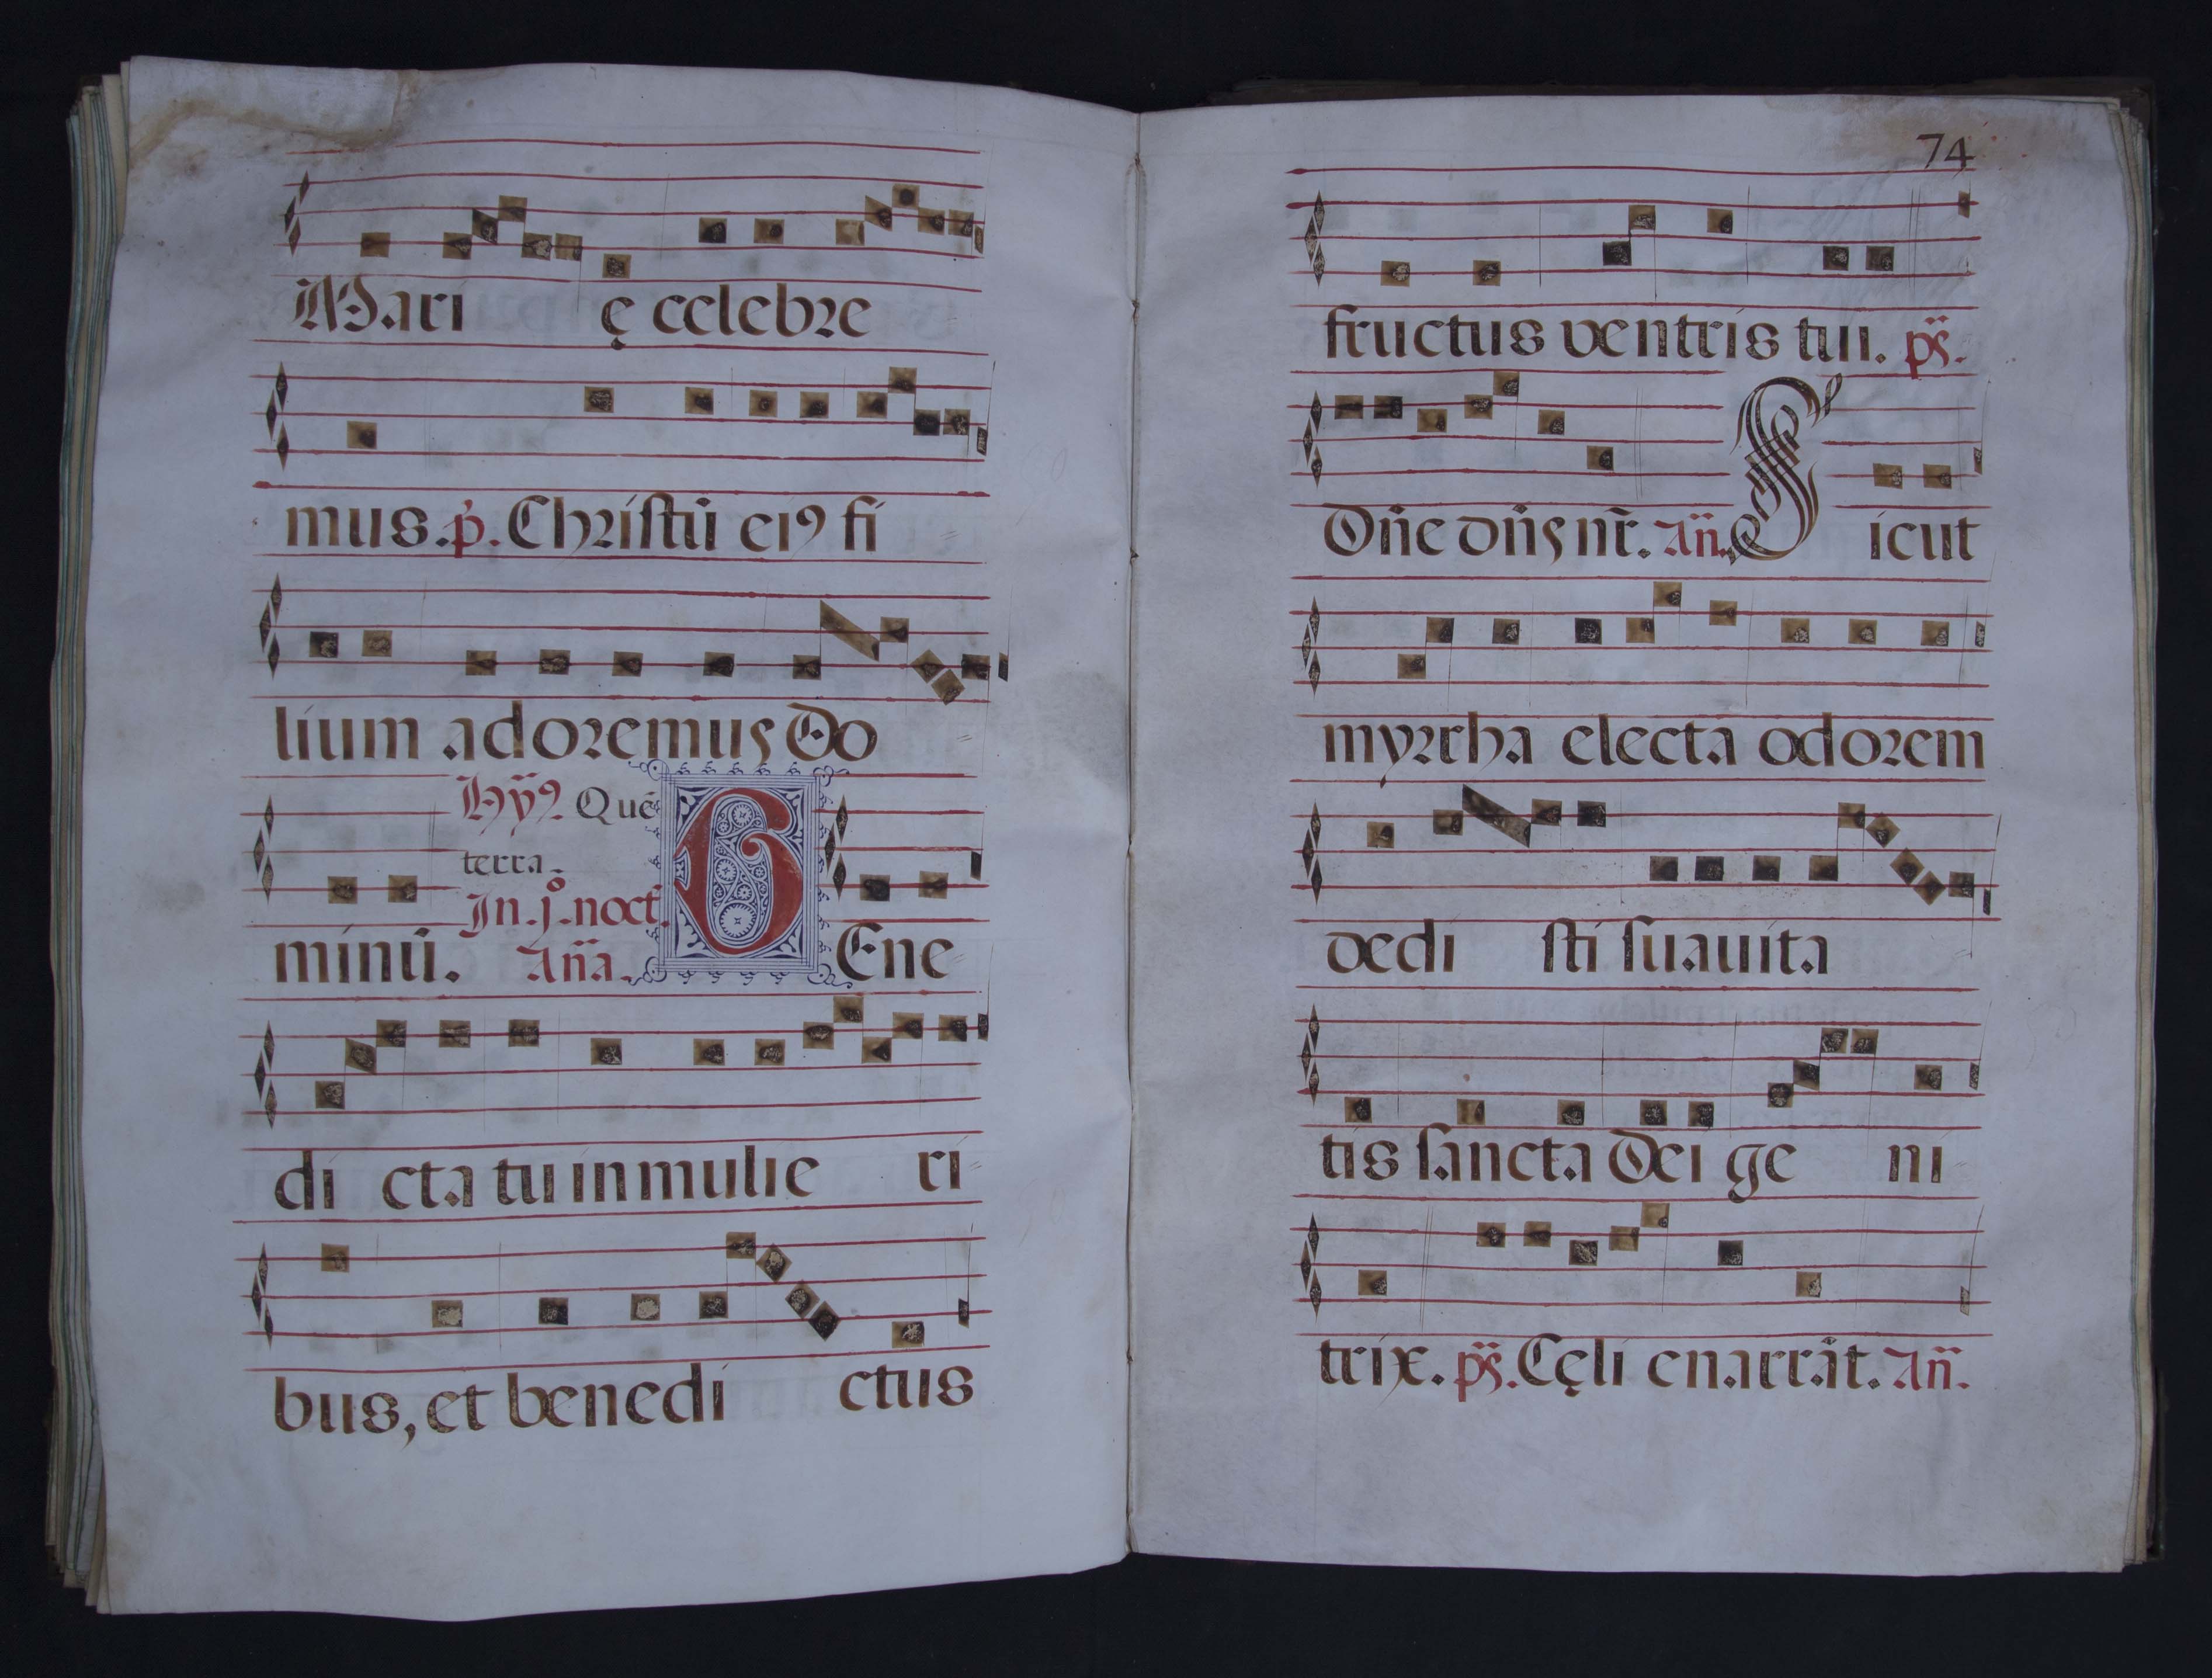 Mari ę celebre
mus. p̃. Christũ eiꝰ fi
lium adoremus Do
Hỹꝰ. Quẽ
terra.
In.j.º noct.
minũ. Añа. B Ene
di cta tu in mulie ri
bus, et benedi ctus
74
fructus ventris tui. ps̃.
Dñe dñs nr̃. Añ. S icut
myrrha electa odorem
dedi sti suauita
tis sancta Dei ge ni
trix. ps̃. Cęli enarrãt. Añ.